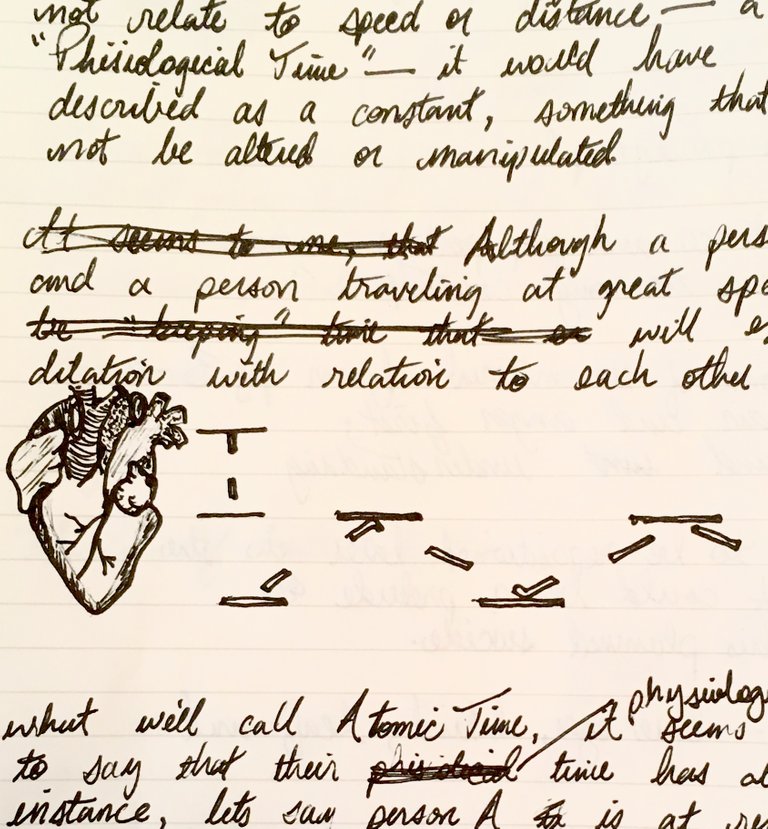 not relate to speed or distance — a
"Phisiological Time" — it would have
described as a constant, something that
not be altered or manipulated.
It seems to me, that Although a pers
and a person traveling at great spe
be "keeping" time that will e
dilation with relation to each other
physiolog
what we'll call Atomic Time, it seems
to say that their time has al
instance, lets say person A is at res